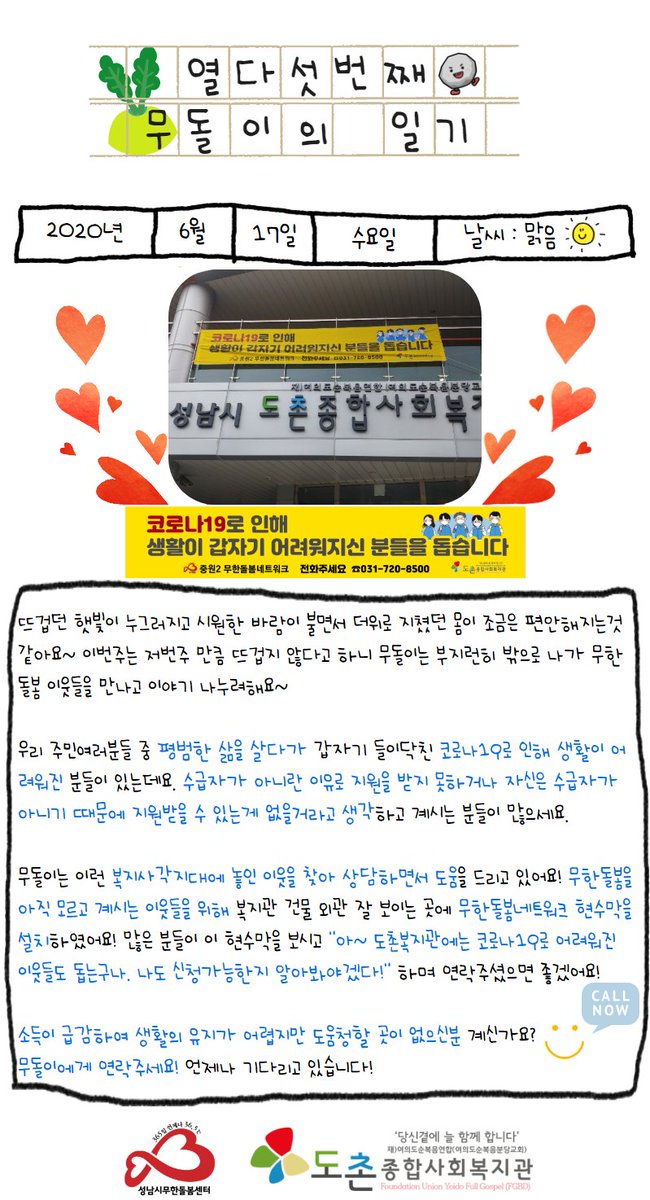 열다섯번째
무돌이의 일기
2020년 6월 17일 수요일 날씨 : 맑음
코로나19로 인해
생활이 갑자기 어려워지신 분들을 돕습니다
중원2 무한돌봄네트워크 전화주세요 ☎031-720-8500
재)여의도순복음연합(여의도순복음분당교
성남시 도촌종합사회복지
코로나19로 인해
생활이 갑자기 어려워지신 분들을 돕습니다
중원2 무한돌봄네트워크 전화주세요 ☎031-720-8500 도촌종합사회복지관
뜨겁던 햇빛이 누그러지고 시원한 바람이 불면서 더위로 지쳤던 몸이 조금은 편안해지는것
같아요~ 이번주는 저번주 만큼 뜨겁지 않다고 하니 무돌이는 부지런히 밖으로 나가 무한
돌봄 이웃들을 만나고 이야기 나누려해요~
우리 주민여러분들 중 평범한 삶을 살다가 갑자기 들이닥친 코로나19로 인해 생활이 어
려워진 분들이 있는데요. 수급자가 아니란 이유로 지원을 받지 못하거나 자신은 수급자가
아니기 때문에 지원받을 수 있는게 없을거라고 생각하고 계시는 분들이 많으세요.
무돌이는 이런 복지사각지대에 놓인 이웃을 찾아 상담하면서 도움을 드리고 있어요! 무한돌봄을
아직 모르고 계시는 이웃들을 위해 복지관 건물 외관 잘 보이는 곳에 무한돌봄네트워크 현수막을
설치하였어요! 많은 분들이 이 현수막을 보시고 "아~ 도촌복지관에는 코로나19로 어려워진
이웃들도 돕는구나. 나도 신청가능한지 알아봐야겠다!" 하며 연락주셨으면 좋겠어요!
CALL
NOW
소득이 급감하여 생활의 유지가 어렵지만 도움청할 곳이 없으신분 계신가요?
무돌이에게 연락주세요! 언제나 기다리고 있습니다!
365일 언제나 36.5도
성남시무한돌봄센터
'당신곁에 늘 함께 합니다'
재)여의도순복음연합(여의도순복음분당교회)
도촌종합사회복지관
Foundation Union Yoido Full Gospel (FGBD)